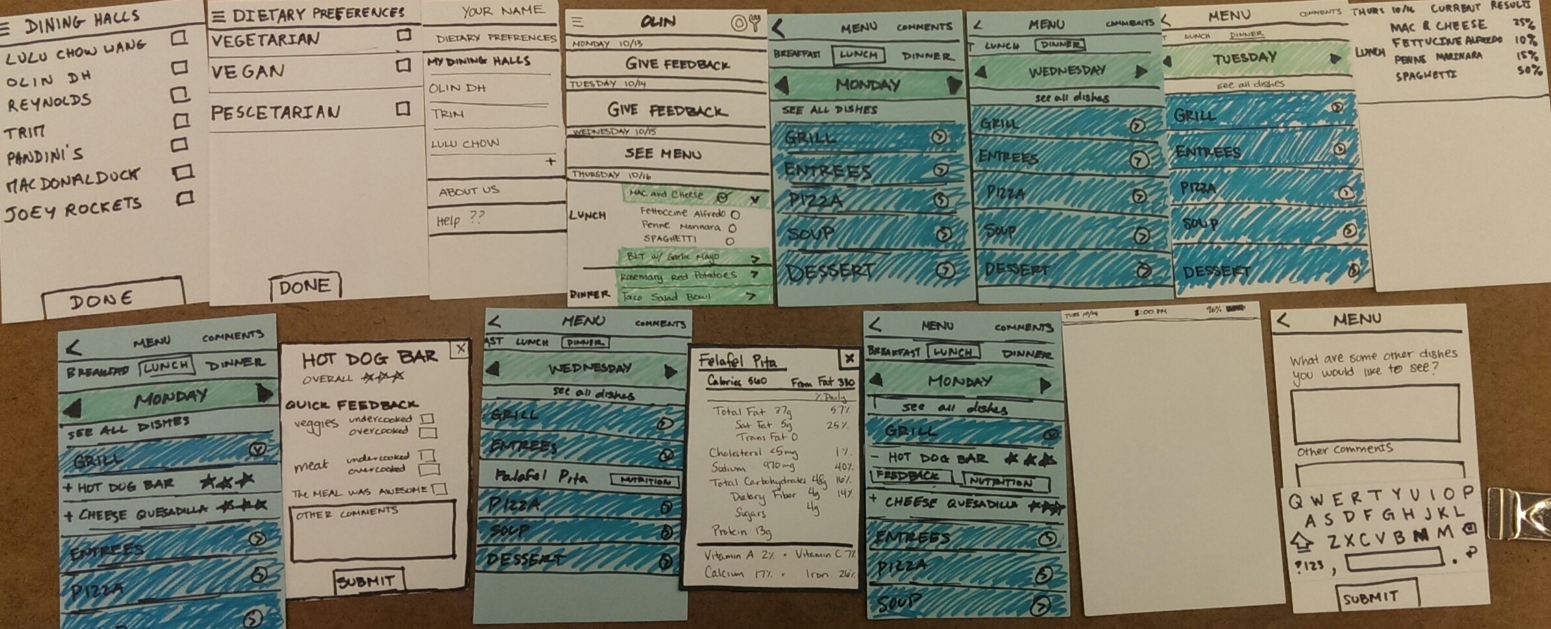 DINING HALLS
LULU CHOW WANG
OLIN DH
REYNOLDS
TRIM
PANDINI'S
MACDONALDUCK
JOEY ROCKETS
DONE
DIETARY PREFERENCES
VEGETARIAN
VEGAN
PESCETARIAN
DONE
YOUR NAME
DIETARY PREFRENCES
MY DINING HALLS
OLIN DH
TRIM
LULU CHOW
+
ABOUT US
Help ??
OLIN
MONDAY 10/13
GIVE FEEDBACK
TUESDAY 10/14
GIVE FEEDBACK
WEDNESDAY 10/15
SEE MENU
THURSDAY 10/16
MAC and Cheese
LUNCH
Fettoccine Alfredo
Penne Marinara
SPAGHETTI
BLT w/ Garlic Mayo
Rosemary Red Potatoes
DINNER
Taco Salad Bowl
MENU COMMENTS
BREAKFAST LUNCH DINNER
MONDAY
SEE ALL DISHES
GRILL
ENTREES
PIZZA
SOUP
DESSERT
MENU COMMENTS
T LUNCH DINNER
WEDNESDAY
see all dishes
GRILL
ENTREES
PIZZA
SOUP
DESSERT
MENU COMMENTS
T LUNCH DINNER
TUESDAY
see all dishes
GRILL
ENTREES
PIZZA
SOUP
DESSERT
THURS 10/16 CURRENT RESULTS
MAC & CHEESE 25%
LUNCH FETTUCINE ALFREDO 10%
PENNE MARINARA 15%
SPAGHETTI 50%
MENU COMMENTS
BREAKFAST LUNCH DINNER
MONDAY
SEE ALL DISHES
GRILL
+ HOT DOG BAR
+ CHEESE QUESADILLA
ENTREES
PIZZA
HOT DOG BAR X
OVERALL
QUICK FEEDBACK
veggies undercooked
overcooked
meat undercooked
overcooked
THE MEAL WAS AWESOME
OTHER COMMENTS
SUBMIT
MENU COMMENTS
AST LUNCH DINNER
WEDNESDAY
see all dishes
GRILL
ENTREES
Falafel Pita NUTRITION
PIZZA
SOUP
DESSERT
Felafel Pita X
Calories 560 From Fat 330
% Daily
Total Fat 37g 57%
Sat Fat 5g 25%
Trans Fat 0
Cholesterol <5mg 1%
Sodium 970mg 40%
Total Carbohydrates 48g 16%
Dietary Fiber 4g 14%
Sugars 4g
Protein 13g
Vitamin A 2% • Vitamin C 7%
Calcium 17% • Iron 26%
MENU COMMENTS
BREAKFAST LUNCH DINNER
MONDAY
see all dishes
GRILL
- HOT DOG BAR
FEEDBACK NUTRITION
+ CHEESE QUESADILLA
ENTREES
PIZZA
SOUP
8:00 PM 90%
MENU
What are some other dishes
you would like to see?
Other Comments
Q W E R T Y U I O P
A S D F G H J K L
Z X C V B N M
?123 , .
SUBMIT